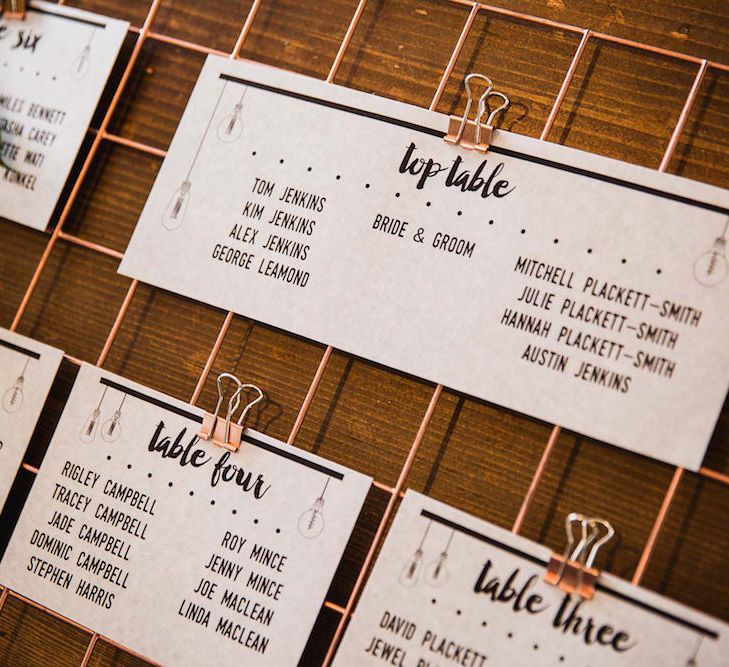 six
MILES BENNETT
CAREY
WATI
KUNKEL
top table
TOM JENKINS
KIM JENKINS
ALEX JENKINS
GEORGE LEAMOND
BRIDE & GROOM
MITCHELL PLACKETT-SMITH
JULIE PLACKETT-SMITH
HANNAH PLACKETT-SMITH
AUSTIN JENKINS
table four
RIGLEY CAMPBELL
TRACEY CAMPBELL
JADE CAMPBELL
DOMINIC CAMPBELL
STEPHEN HARRIS
ROY MINCE
JENNY MINCE
JOE MACLEAN
LINDA MACLEAN
table three
DAVID PLACKETT
JEWEL